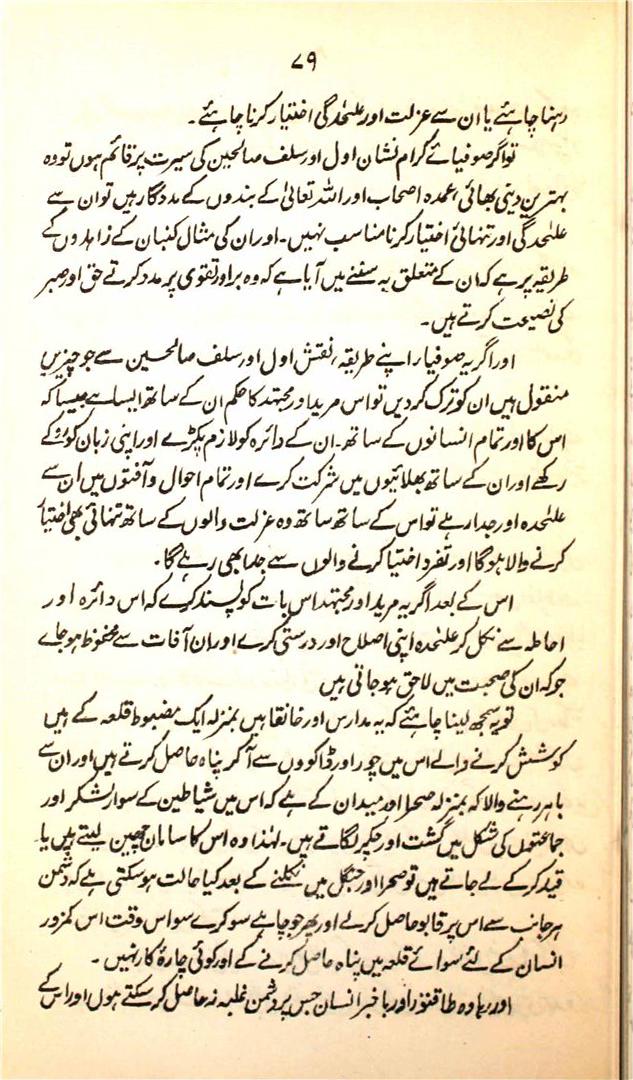 ۷۹
رہنا چاہئے یا ان سے عزلت اور علٰحدگی اختیار کرنا چاہئے۔
تو اگر صوفیائے کرام نشان اول اور سلف صالحین کی سیرت پر قائم ہوں تو وہ
بہترین دینی بھائی، عمدہ اصحاب اور اللہ تعالیٰ کے بندوں کے مددگار ہیں تو ان سے
علٰحدگی اور تنہائی اختیار کرنا مناسب نہیں۔ اور ان کی مثال کنبان کے زاہدوں کے
طریقہ پر ہے کہ ان کے متعلق یہ سننے میں آیا ہے کہ وہ بر اور تقوی پر مدد کرتے حق اور صبر
کی نصیحت کرتے ہیں۔
اور اگر یہ صوفیاء اپنے طریقہ، نقش اول اور سلف صالحین سے جو چیزیں
منقول ہیں ان کو ترک کر دیں تو اس مرید اور مجتہد کا حکم ان کے ساتھ ایسا ہے جیسا کہ
اس کا اور تمام انسانوں کے ساتھ۔ ان کے دائرہ کو لازم پکڑے اور اپنی زبان کو روکے
رکھے اور ان کے ساتھ بھلائیوں میں شرکت کرے اور تمام احوال و آفتوں میں ان سے
علٰحدہ اور جدا رہے تو اس کے ساتھ ساتھ وہ عزلت والوں کے ساتھ تنہائی بھی اختیار
کرنے والا ہوگا اور تفرد اختیا کرنے والوں سے جدا بھی رہے گا۔
اس کے بعد اگر یہ مرید اور مجتہد اس بات کو پسند کرے کہ اس دائرہ اور
احاطہ سے نکل کر علٰحدہ اپنی اصلاح اور درستی کرے اور ان آفات سے محفوظ ہو جائے
جو کہ ان کی صحبت میں لاحق ہو جاتی ہیں
تو یہ سمجھ لینا چاہئے کہ یہ مدارس اور خانقاہیں بمنزلہ ایک مضبوط قلعہ کے ہیں
کوشش کرنے والے اس میں چور اور ڈاکووں سے آکر پناہ حاصل کرتے ہیں اور ان سے
باہر رہنے والا کہ بمنزلہ صحرا اور میدان کے ہے کہ اس میں شیاطین کے سوار لشکر اور
جماعتوں کی شکل میں گشت اور چکر لگاتے ہیں۔ لہٰذا وہ اس کا سامان چھین لیتے ہیں یا
قید کر کے لے جاتے ہیں تو صحرا اور جنگل میں نکلنے کے بعد کیا حالت ہو سکتی ہے کہ دشمن
ہر جانب سے اس پر قابو حاصل کر لے اور پھر جو چاہے سو کرے سو اس وقت اس کمزور
انسان کے لئے سوائے قلعہ میں پناہ حاصل کرنے کے اور کوئی چارۂ کار نہیں۔
اور رہا وہ طاقتور اور باخبر انسان جس پر دشمن غلبہ نہ حاصل کر سکتے ہوں اور اس کے